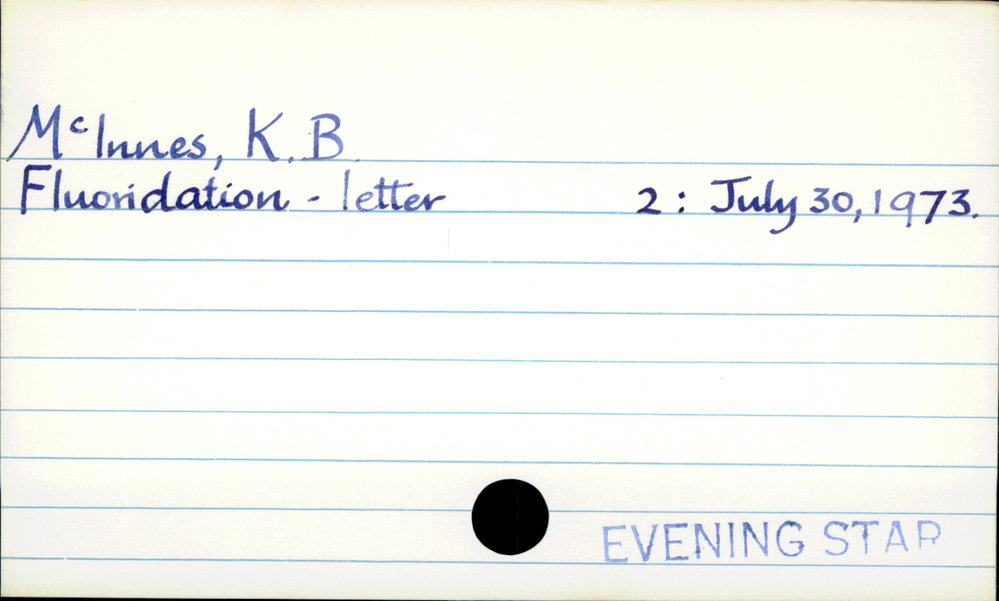 McInnes, K.B.
Fluoridation - letter 2: July 30, 1973.
EVENING STAR